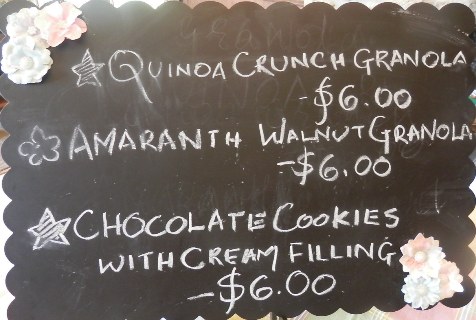 QUINOA CRUNCH GRANOLA
-$6.00
AMARANTH WALNUT GRANOLA
-$6.00
CHOCOLATE COOKIES
WITH CREAM FILLING
-$6.00